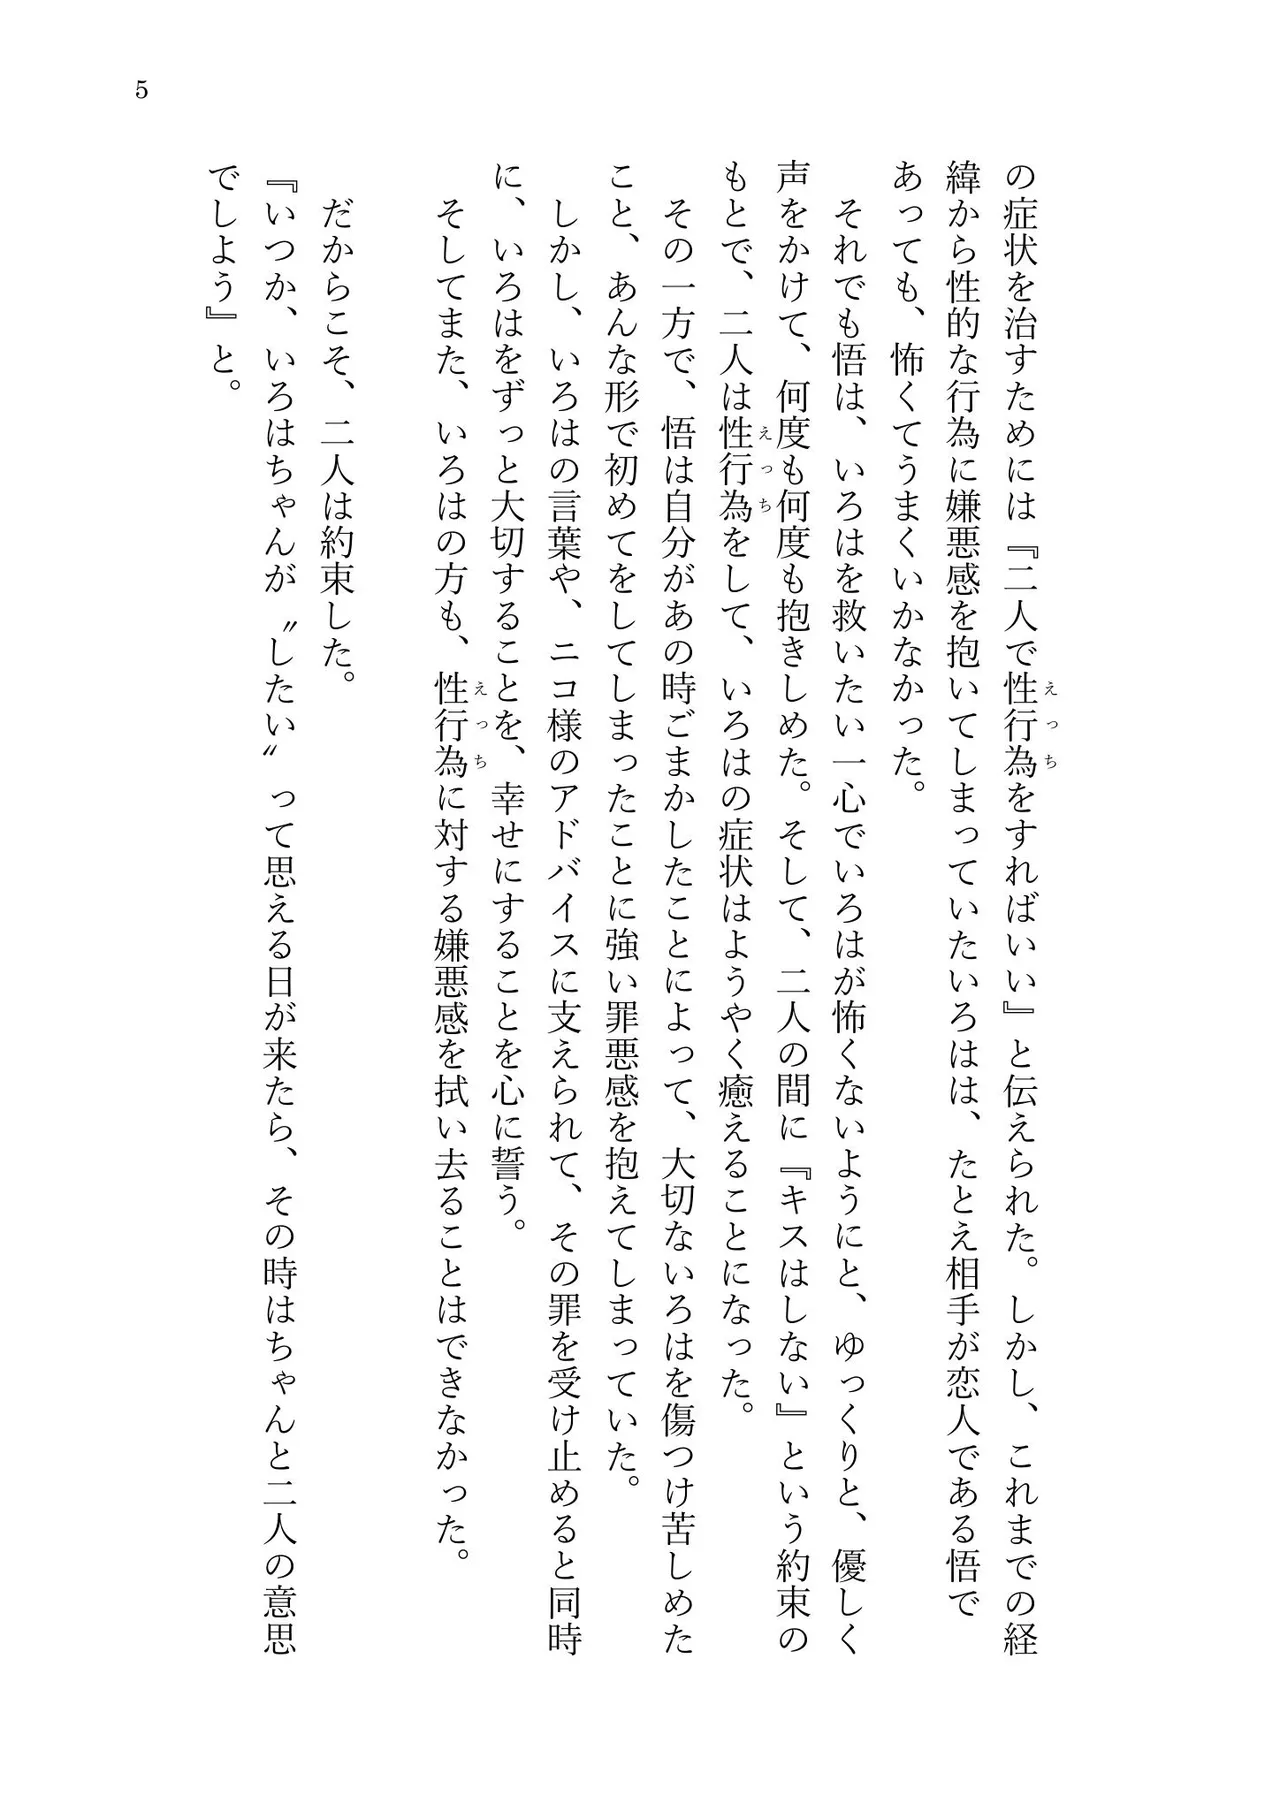 5
の症状を治すためには『二人で性行為をすればいい』と伝えられた。しかし、これまでの経
えっち
緯から性的な行為に嫌悪感を抱いてしまっていたいろはは、たとえ相手が恋人である悟で
あっても、怖くてうまくいかなかった。
それでも悟は、いろはを救いたい一心でいろはが怖くないようにと、ゆっくりと、優しく
声をかけて、何度も何度も抱きしめた。そして、二人の間に『キスはしない』という約束の
もとで、二人は性行為をして、いろはの症状はようやく癒えることになった。
えっち
その一方で、悟は自分があの時ごまかしたことによって、大切ないろはを傷つけ苦しめた
こと、あんな形で初めてをしてしまったことに強い罪悪感を抱えてしまっていた。
しかし、いろはの言葉や、ニコ様のアドバイスに支えられて、その罪を受け止めると同時
に、いろはをずっと大切することを、幸せにすることを心に誓う。
そしてまた、いろはの方も、性行為に対する嫌悪感を拭い去ることはできなかった。
えっち
だからこそ、二人は約束した。
『いつか、いろはちゃんが〝したい〟って思える日が来たら、その時はちゃんと二人の意思
でしよう』と。